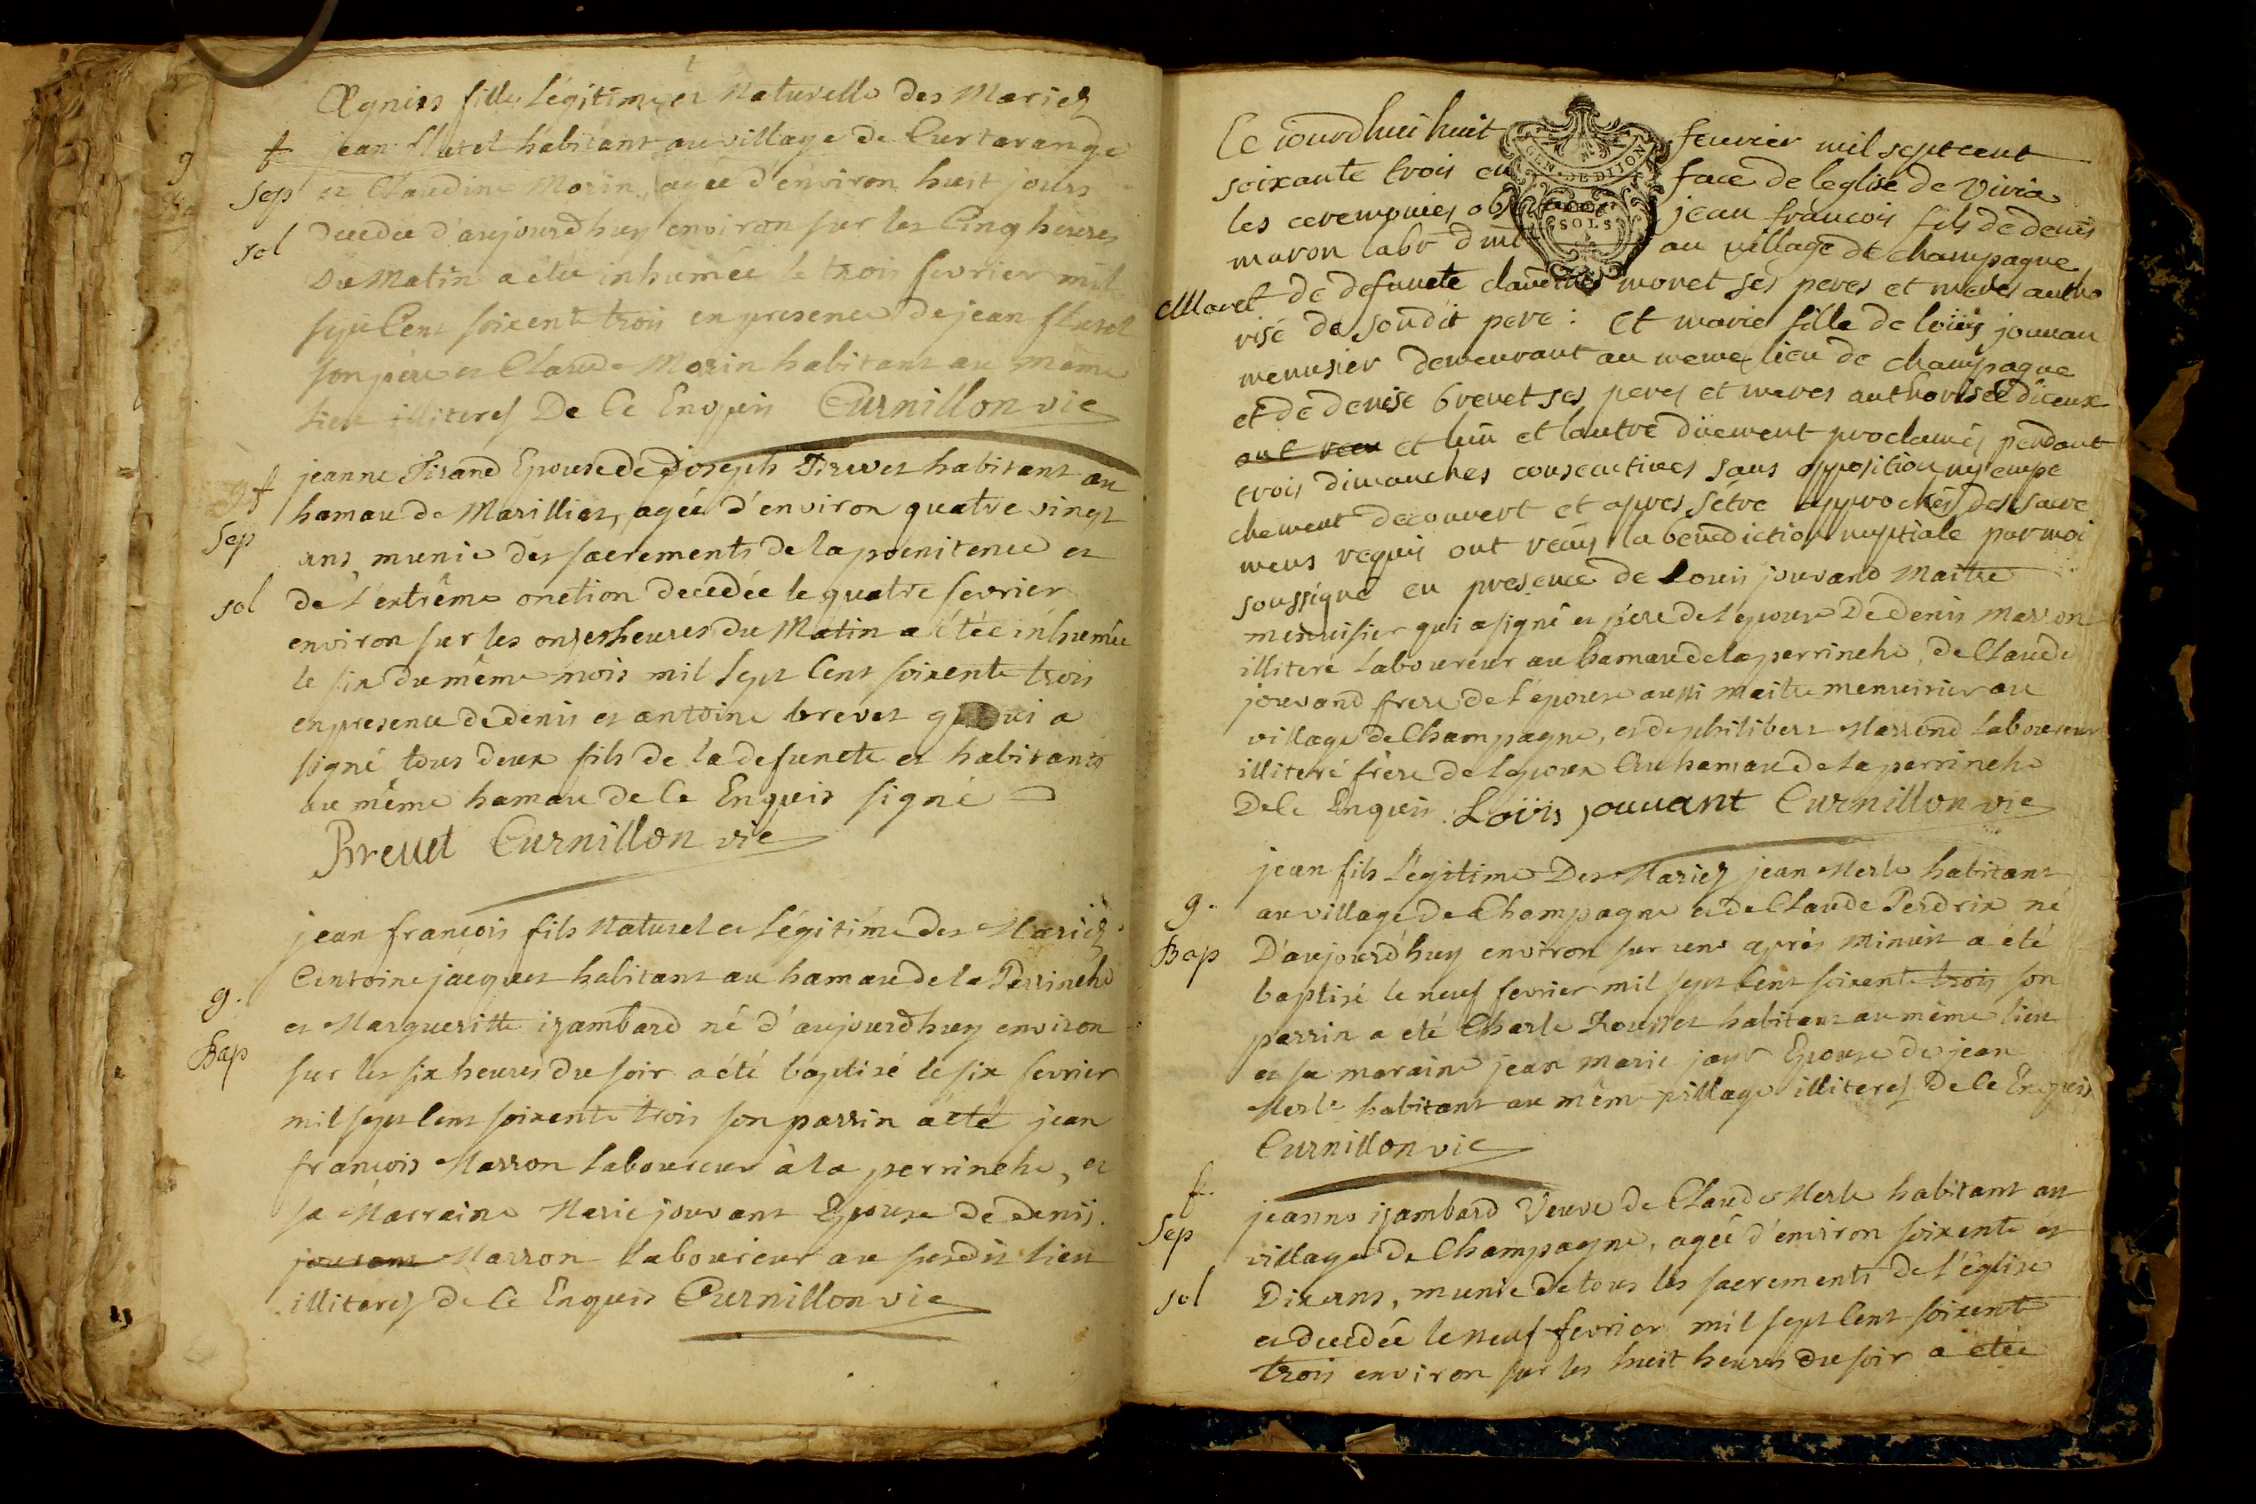 Agnies fille Légitime et Naturelle des Mariez
f jean flutet habitant au village de Curtarange
sep et Claudine Morin, agée d'environ huit jours
sol decedée d'aujourdhuy environ sur les Cinq heures
Du Matin a étée inhumée le trois fevrier mil
sept Cent soixente trois en presence de jean flutet
son père et Claude Morin habitant au même
lieu illiterez De Ce Enquis Curnillon vic
gf jeanne Tisand Epouse de joseph Brevet habitant au
hamau de Marilliat, agée d'environ quatre vingt
sep ans, munie des sacrements de la poenitence et
sol de L'extrême onction decedée le quatre fevrier
environ sur les onzes heures du Matin a étée inhumée
le six du même mois mil sept Cent soixente trois
en presence de denis et antoine brevet qui a
signé tous deux fils de la defuncte et habitants
au même hamau de Ce Enquis signé
Brevet Curnillon vic
jean françois fils Naturel et Légitime des Mariez
antoine jacquet habitant au hamau de la Perrinche
g. et Marguerittte izambard né d'aujourdhuy environ
Bap sur les six heures du soir a été baptisé le six fevrier
mil sept Cent soixente trois son parrin a été jean
françois Marron Laboureur à la perrinche, et
sa Marraine Marie jouvant Epouse de denis
jouvant Marron Laboureur au susdit lieu
illiterez de Ce Enquis Curnillon vic
GEN. DE DIJON
SOLS
Ce iourdhui huit fevrier mil sept cent
soixante trois en face de leglise de viria
les ceremonies jean francois fils de denis
maron labr au village de champagne
Mare de defuncte claudine moret ses peres et meres autho
risé de soudit pere : Et marie fille de loüis jouvan
menusier demeurant au meme lieu de champagne
et de denise brevet ses peres et meres authorisée diceux
ont recu et lun et lautre düement proclamés pendant
trois dimanches consecutives sans opposition ny empe
chement decouvert et apres sétre approchés des sacre
mens requis ont recus la benediction nuptiale par moi
soussigné en presence de Louis jouvand Maitre
menuisier qui a signé et père de l'epouse De denis Marron
illiteré Laboureur au hamau de la perrinche, de Claude
jouvand frere de l'épouse aussi maitre menuisier au
village de Champagne, et de philibert Marrond Laboureur
illiteré frère de l'epoux au hamau de la perrinche
De Ce Enquis Loüis jouvant Curnillon vic
jean fils Légitime Des Mariez jean Merle habitant
g. au village de Champagne et de Claude Perdrix né
Bap D'aujourdhuy environ sur une après minuit a été
baptisé le neuf fevrier mil sept Cent soixente trois son
parrin a eté Charle Rousset habitant au même lieu
et sa maraine jean marie Epouse de jean
Merle habitant au même village illiterez De Ce Enquis
Curnillon vic
f. jeanne izambard Veuve de Claude Merle habitant au
Sep village de Champagne, agée d'environ soixente et
sol Dix ans, munie de tous les sacrements de l'église
et decedée le neuf fevrier mil sept Cent soixente
trois environ sur les huit heures du soir a étée